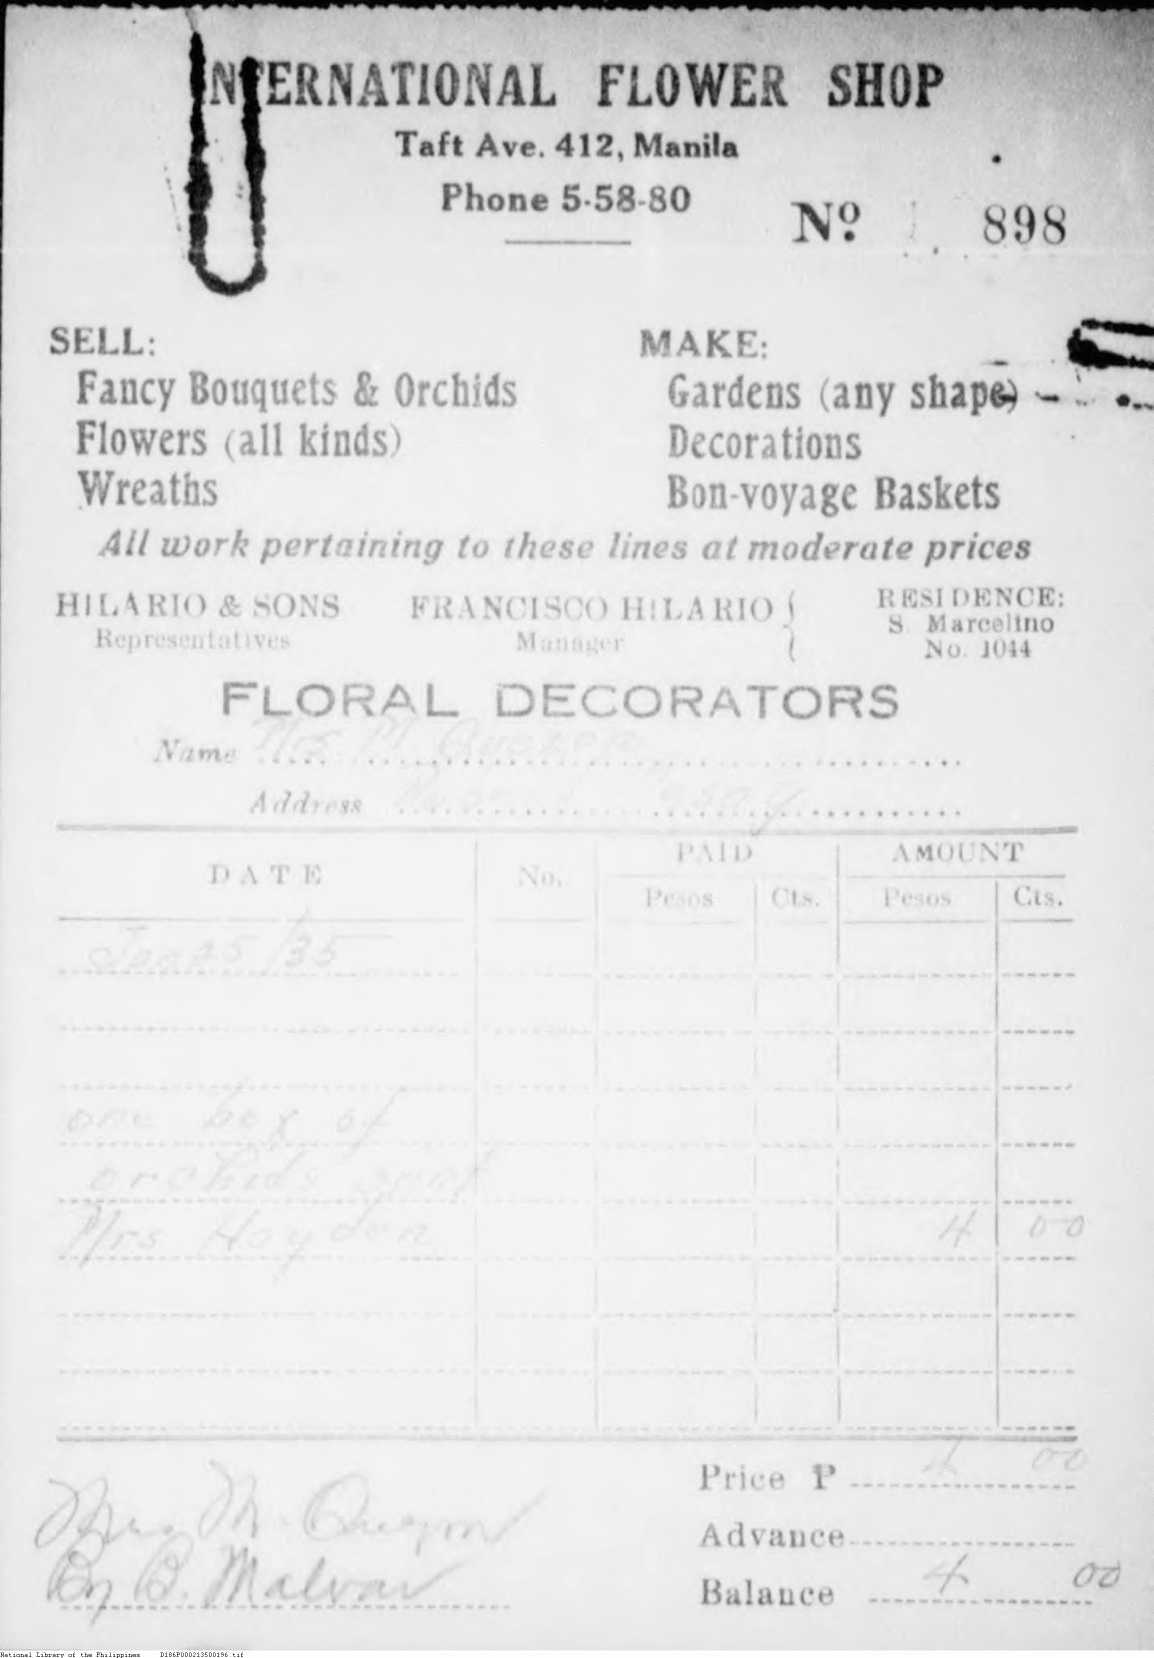 INTERNATIONAL FLOWER SHOP
Taft Ave. 412, Manila
Phone 5-58-80
Nº 898
SELL:
Fancy Bouquets & Orchids
Flowers (all kinds)
Wreaths
MAKE:
Gardens (any shape)
Decorations
Bon-voyage Baskets
All work pertaining to these lines at moderate prices
HILARIO & SONS
Representatives
FRANCISCO HILARIO
Manager
RESIDENCE:
S. Marcelino
No. 1044
FLORAL DECORATORS
Name Mrs M. Quezon
Address
DATE No. PAID AMOUNT
Pesos Cts. Pesos Cts.
35
one box of
orchids sent
Mrs Hayden 4 00
Price ₱ 4 00
Advance
Balance 4 00
Mrs M. Quezon
By B. Malvar
National Library of the Philippines D186P000213500196.tif